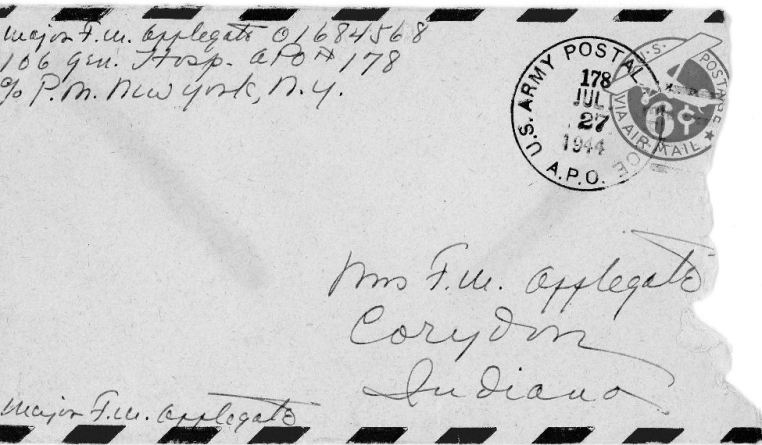 Major F.M. Applegate 01684568
106 Gen. Hosp. APO # 178
c/o P.M. New York, N.Y.
U.S. ARMY POSTAL
178
JUL
27
1944
A.P.O.
U.S. POSTAGE
6¢
VIA AIR MAIL
Mrs F.M. Applegate
Corydon
Indiana
Major F.M. Applegate